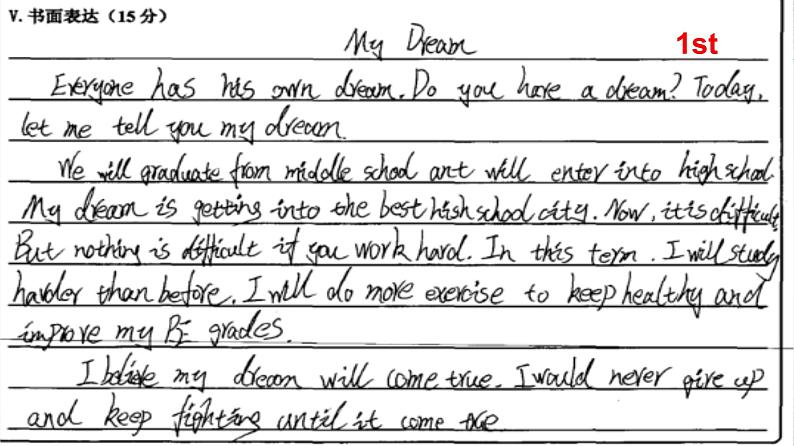 V. 书面表达（15 分）
My Dream
1st
Everyone has his own dream. Do you have a dream? Today,
let me tell you my dream.
We will graduate from middle school ant will enter into high school.
My dream is getting into the best high school city. Now, it is difficult.
But nothing is difficult if you work hard. In this term. I will study
harder than before. I will do more exercise to keep healthy and
improve my PE grades.
I believe my dream will come true. I would never give up
and keep fighting until it come true